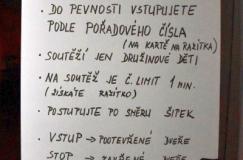 • DO PEVNOSTI VSTUPUJETE
PODLE POŘADOVÉHO ČÍSLA
(NA KARTĚ NA RAZÍTKA)
• SOUTĚŽÍ JEN DRUŽINOVÉ DĚTI
• NA SOUTĚŽ JE Č. LIMIT 1 MIN.
(ZÍSKÁTE RAZÍTKO)
• POSTUPUJTE PO SMĚRU ŠIPEK
VSTUP → POOTEVŘENÉ DVEŘE
STOP → ZAVŘENÉ DVEŘE